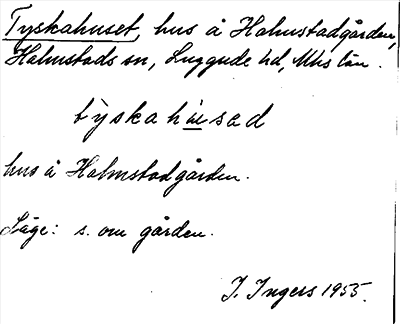 Tyskahuset, hus å Halmstadgården,
Halmstads sn, Luggude hd, Mhs län.
tỳskahu̇sed
hus å Halmstadgården.
Läge: s. om gården.
I. Ingers 1955.